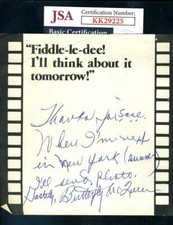 JSA
Certification Number:
KK29225
Basic Certification
"Fiddle-le-dee!
I'll think about it
tomorrow!"
Thanks
When I'm next
in New York
I'll send photo.
Hastily, Butterfly McQueen